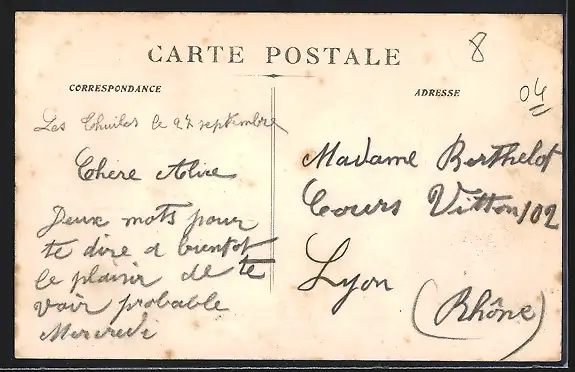 8
04
CARTE POSTALE
CORRESPONDANCE
ADRESSE
Les le 27 septembre
Chere Alice
Deux mots pour
te dire a bientot
le plaisir de te
voir probable
Mercredi
Madame Berthelot
Cours Vitton 102
Lyon
(Rhône)